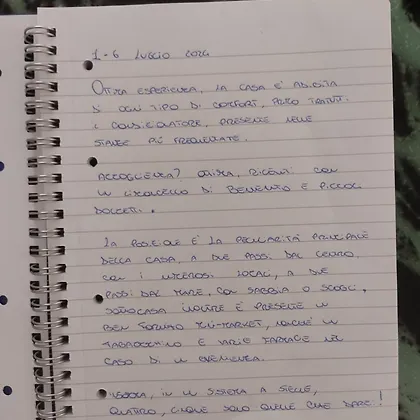 1-6 LUGLIO 2024
OTTIMA ESPERIENZA, LA CASA E' ADIBITA
DI OGNI TIPO DI COMFORT,
I CONDIZIONATORE, PRESENTE NELLE
STANZE PIÙ FREQUENTATE.
ACCOGLIENZA? OTTIMA, RICEVUTI CON
UN LIMONCELLO DI BENVENUTO E PICCOLI
DOLCETTI.
LA POSIZIONE È LA PECULARITÀ PRINCIPALE
DELLA CASA, A DUE PASSI DAL CENTRO
CON I NUMEROSI LOCALI, A DUE
PASSI DAL MARE, CON SABBIA O SCOGLI.
SOTTOCASA INOLTRE È PRESENTE UN
BEN FORNITO MINI-MARKET, NONCHÉ UN
TABACCHINO E VARIE FARMACIE IN
CASO DI UN EMERGENZA.
INSOMMA, IN UN SISTEMA A STELLE,
QUATTRO, CINQUE SOLO QUELLE CHE DARE!